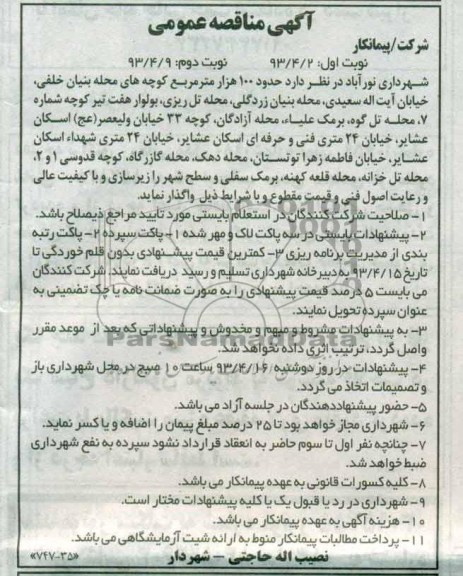 آگهی مناقصه عمومی
شرکت/پیمانکار
نوبت اول: ۹۳/۴/۲ نوبت دوم: ۹۳/۴/۹
شهرداری نورآباد در نظر دارد حدود ۱۰۰ هزار مترمربع کوچه های محله بنیان خلفی،
خیابان آیت اله سعیدی، محله بنیان زردگلی، محله تل ریزی، بولوار هفت تیر کوچه شماره
۷، محله تل گوه، برمک علیاء، محله آزادگان، کوچه ۳۳ خیابان ولیعصر(عج) اسکان
عشایر، خیابان ۲۴ متری فنی و حرفه ای اسکان عشایر، خیابان ۲۴ متری شهداء اسکان
عشایر، خیابان فاطمه زهرا توتستان، محله دهک، محله گازرگاه، کوچه قدوسی ۱ و ۲،
محله تل خزانه، محله قلعه کهنه، برمک سفلی و سطح شهر را زیرسازی و با کیفیت عالی
و رعایت اصول فنی و قیمت مقطوع و با شرایط ذیل واگذار نماید.
۱- صلاحیت شرکت کنندگان در استعلام بایستی مورد تایید مراجع ذیصلاح باشد.
۲- پیشنهادات بایستی در سه پاکت لاک و مهر شده ۱- پاکت سپرده ۲- پاکت رتبه
بندی از مدیریت برنامه ریزی ۳- کمترین قیمت پیشنهادی بدون قلم خوردگی تا
تاریخ ۹۳/۴/۱۵ به دبیرخانه شهرداری تسلیم و رسید دریافت نمایند. شرکت کنندگان
می بایست ۵ درصد قیمت پیشنهادی را به صورت ضمانت نامه یا چک تضمینی به
عنوان سپرده تحویل نمایند.
۳- به پیشنهادات مشروط و مبهم و مخدوش و پیشنهاداتی که بعد از موعد مقرر
واصل گردد، ترتیب اثری داده نخواهد شد.
۴- پیشنهادات در روز دوشنبه ۹۳/۴/۱۶ ساعت ۱۰ صبح در محل شهرداری باز
و تصمیمات اتخاذ می گردد.
۵- حضور پیشنهاددهندگان در جلسه آزاد می باشد.
۶- شهرداری مجاز خواهد بود تا ۲۵ درصد مبلغ پیمان را اضافه و یا کسر نماید.
۷- چنانچه نفر اول تا سوم حاضر به انعقاد قرارداد نشود سپرده به نفع شهرداری
ضبط خواهد شد.
۸- کلیه کسورات قانونی به عهده پیمانکار می باشد.
۹- شهرداری در رد یا قبول یک یا کلیه پیشنهادات مختار است.
۱۰- هزینه آگهی به عهده پیمانکار می باشد.
۱۱- پرداخت مطالبات پیمانکار منوط به ارائه شیت آزمایشگاهی می باشد.
نصیب اله حاجتی - شهردار
«۷۴۷-۳۵»
ParsNamadData